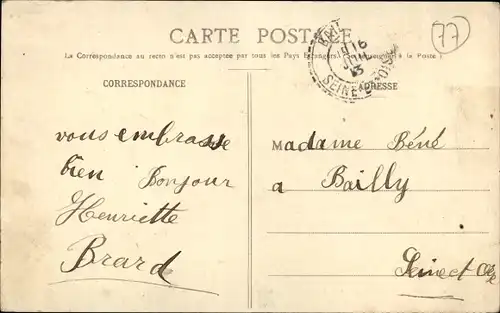 CARTE POSTALE
La Correspondance au recto n'est pas acceptée par tous les Pays Étrangers. à la Poste
CORRESPONDANCE
ADRESSE
77
16
13
SEINE-ET-OISE
vous embrasse
bien Bonjour
Henriette
Brard
Madame Béné
a Bailly
Seine et Oise